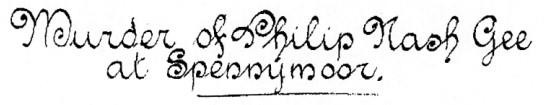 Murder of Philip Nash Gee
at Spennymoor.